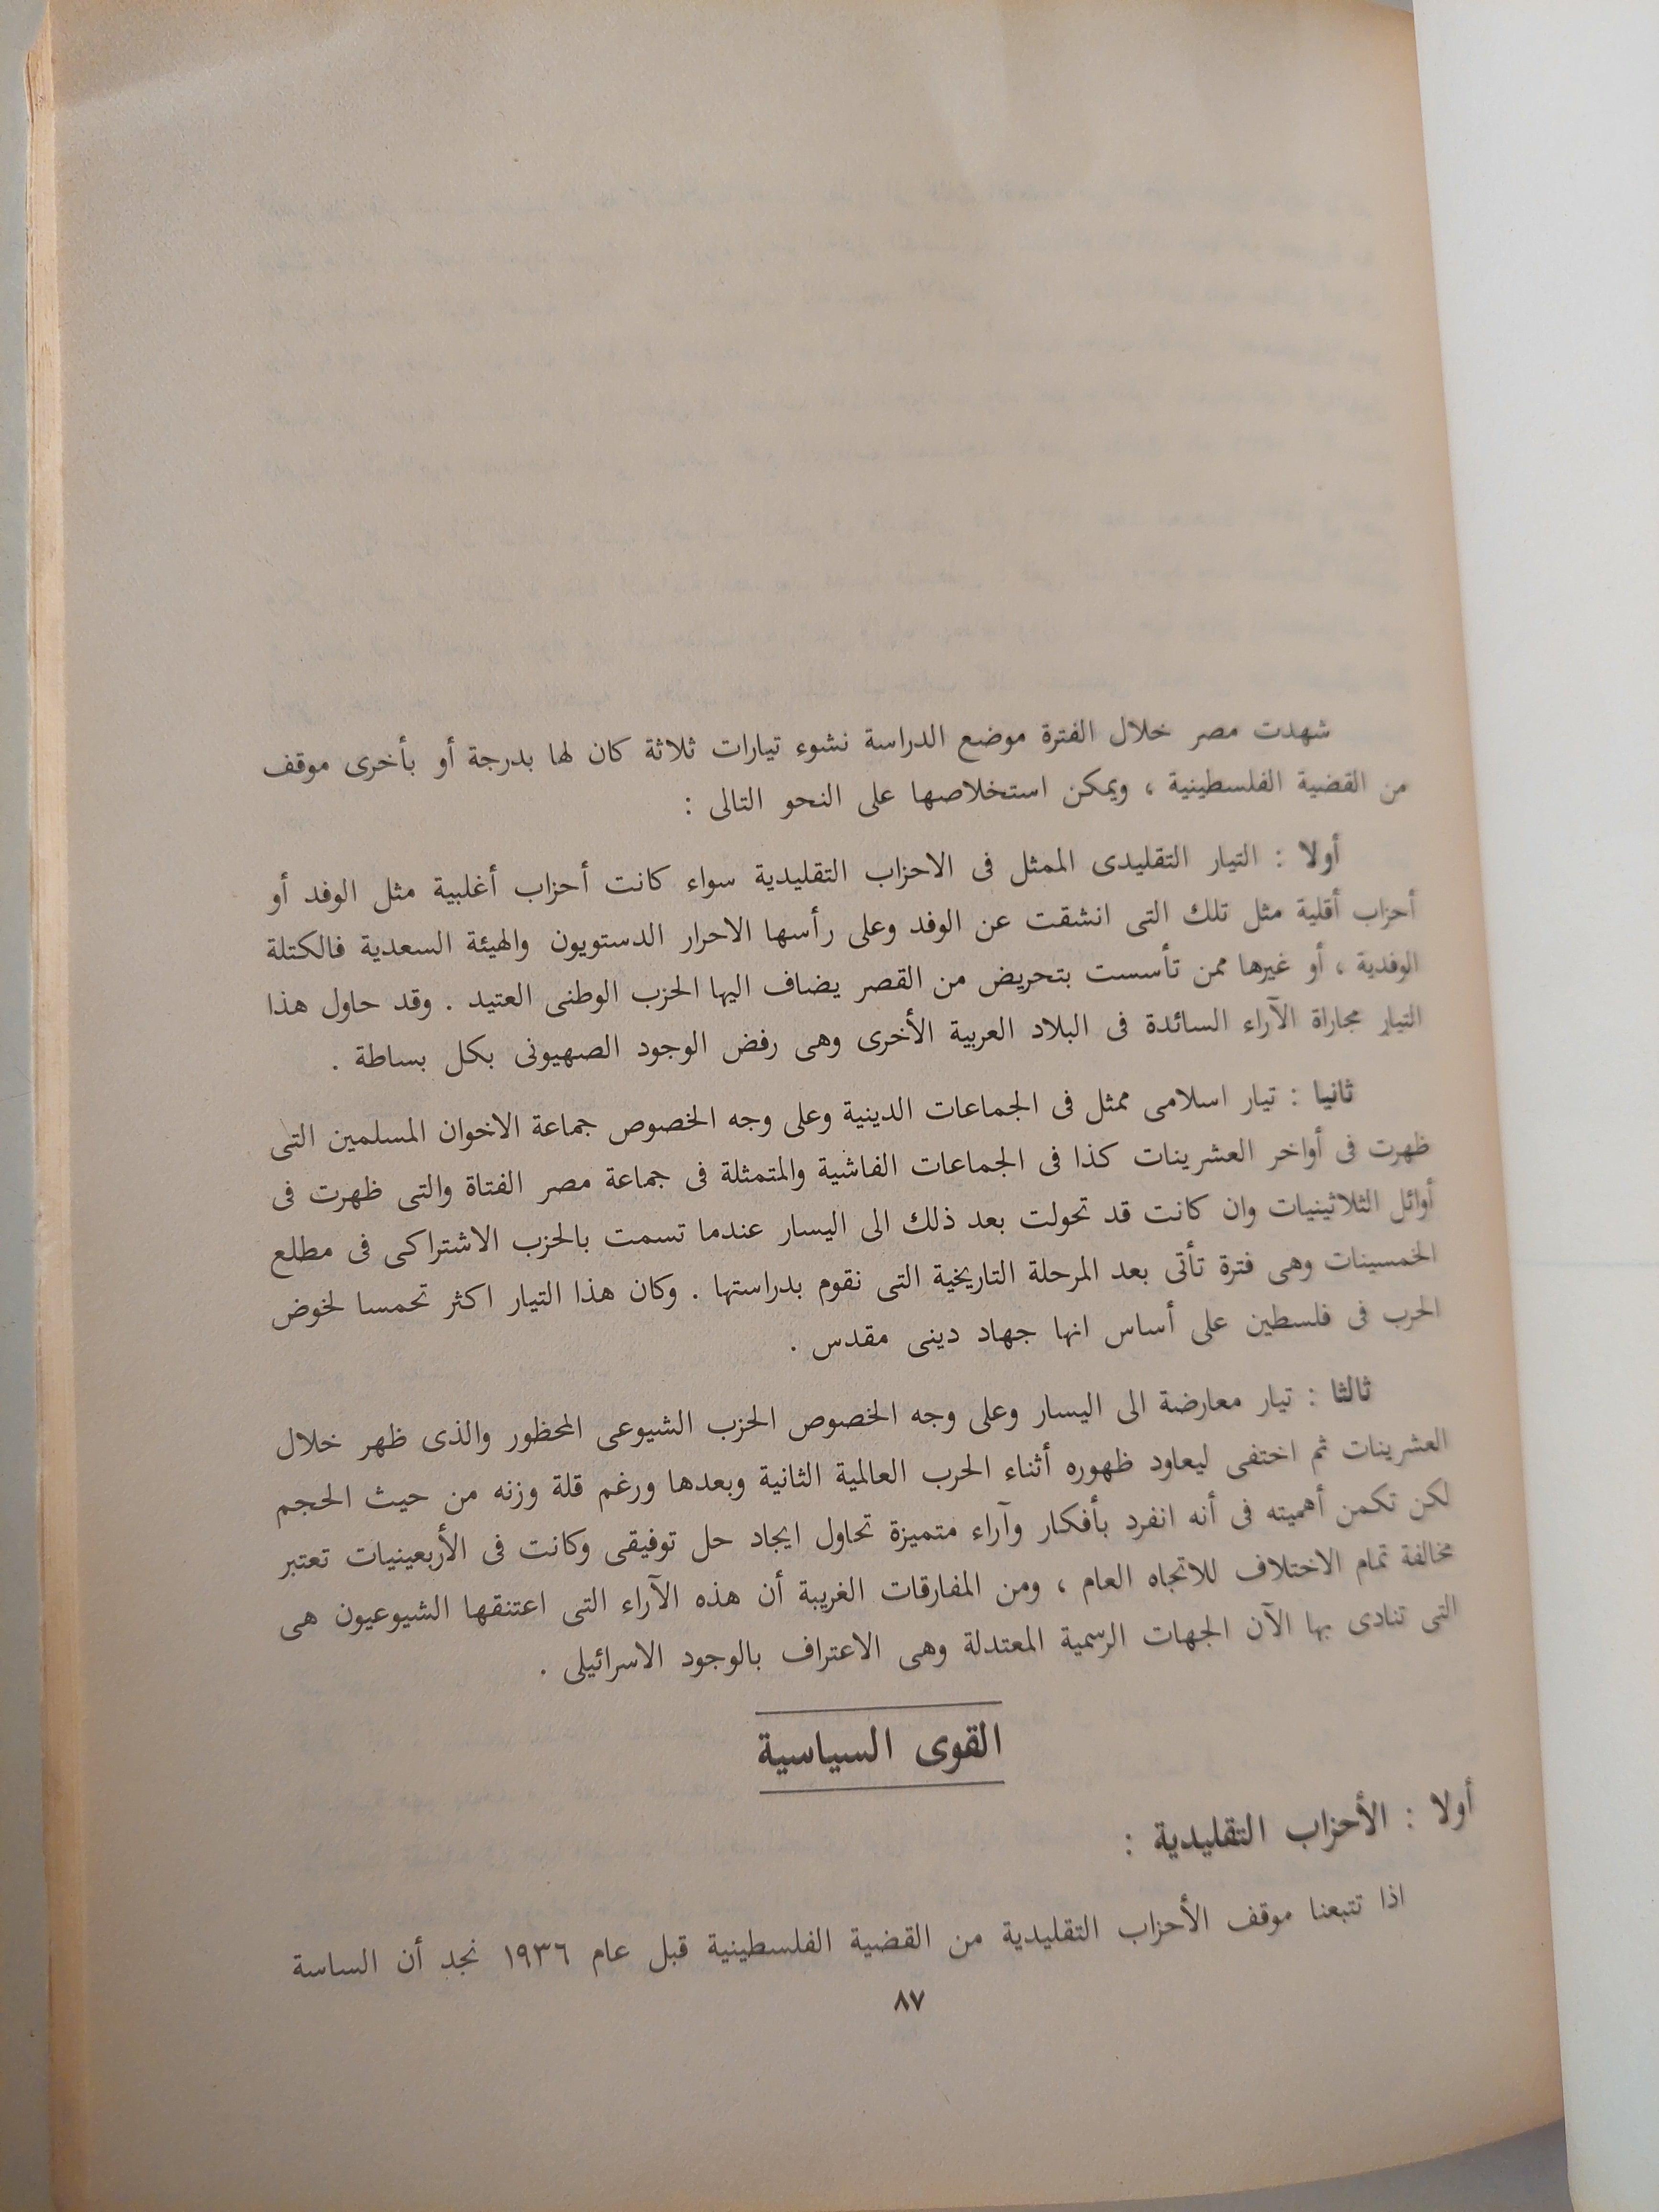 شهدت مصر خلال الفترة موضع الدراسة نشوء تيارات ثلاثة كان لها بدرجة أو بأخرى موقف
من القضية الفلسطينية ، ويمكن استخلاصها على النحو التالى :
أولا : التيار التقليدى الممثل فى الاحزاب التقليدية سواء كانت أحزاب أغلبية مثل الوفد أو
أحزاب أقلية مثل تلك التى انشقت عن الوفد وعلى رأسها الاحرار الدستويون والهيئة السعدية فالكتلة
الوفدية ، أو غيرها ممن تأسست بتحريض من القصر يضاف اليها الحزب الوطنى العتيد . وقد حاول هذا
التيار مجاراة الآراء السائدة فى البلاد العربية الأخرى وهى رفض الوجود الصهيونى بكل بساطة .
ثانيا : تيار اسلامى ممثل فى الجماعات الدينية وعلى وجه الخصوص جماعة الاخوان المسلمين التى
ظهرت فى أواخر العشرينات كذا فى الجماعات الفاشية والمتمثلة فى جماعة مصر الفتاة والتى ظهرت فى
أوائل الثلاثينيات وان كانت قد تحولت بعد ذلك الى اليسار عندما تسمت بالحزب الاشتراكى فى مطلع
الخمسينات وهى فترة تأتى بعد المرحلة التاريخية التى نقوم بدراستها . وكان هذا التيار اكثر تحمسا لخوض
الحرب فى فلسطين على أساس انها جهاد دينى مقدس .
ثالثا : تيار معارضة الى اليسار وعلى وجه الخصوص الحزب الشيوعى المحظور والذى ظهر خلال
العشرينات ثم اختفى ليعاود ظهوره أثناء الحرب العالمية الثانية وبعدها ورغم قلة وزنه من حيث الحجم
لكن تكمن أهميته فى أنه انفرد بأفكار وآراء متميزة تحاول ايجاد حل توفيقى وكانت فى الأربعينيات تعتبر
مخالفة تمام الاختلاف للاتجاه العام ، ومن المفارقات الغريبة أن هذه الآراء التى اعتنقها الشيوعيون هى
التى تنادى بها الآن الجهات الرسمية المعتدلة وهى الاعتراف بالوجود الاسرائيلى .
القوى السياسية
أولا : الأحزاب التقليدية :
اذا تتبعنا موقف الأحزاب التقليدية من القضية الفلسطينية قبل عام ١٩٣٦ نجد أن الساسة
٨٧